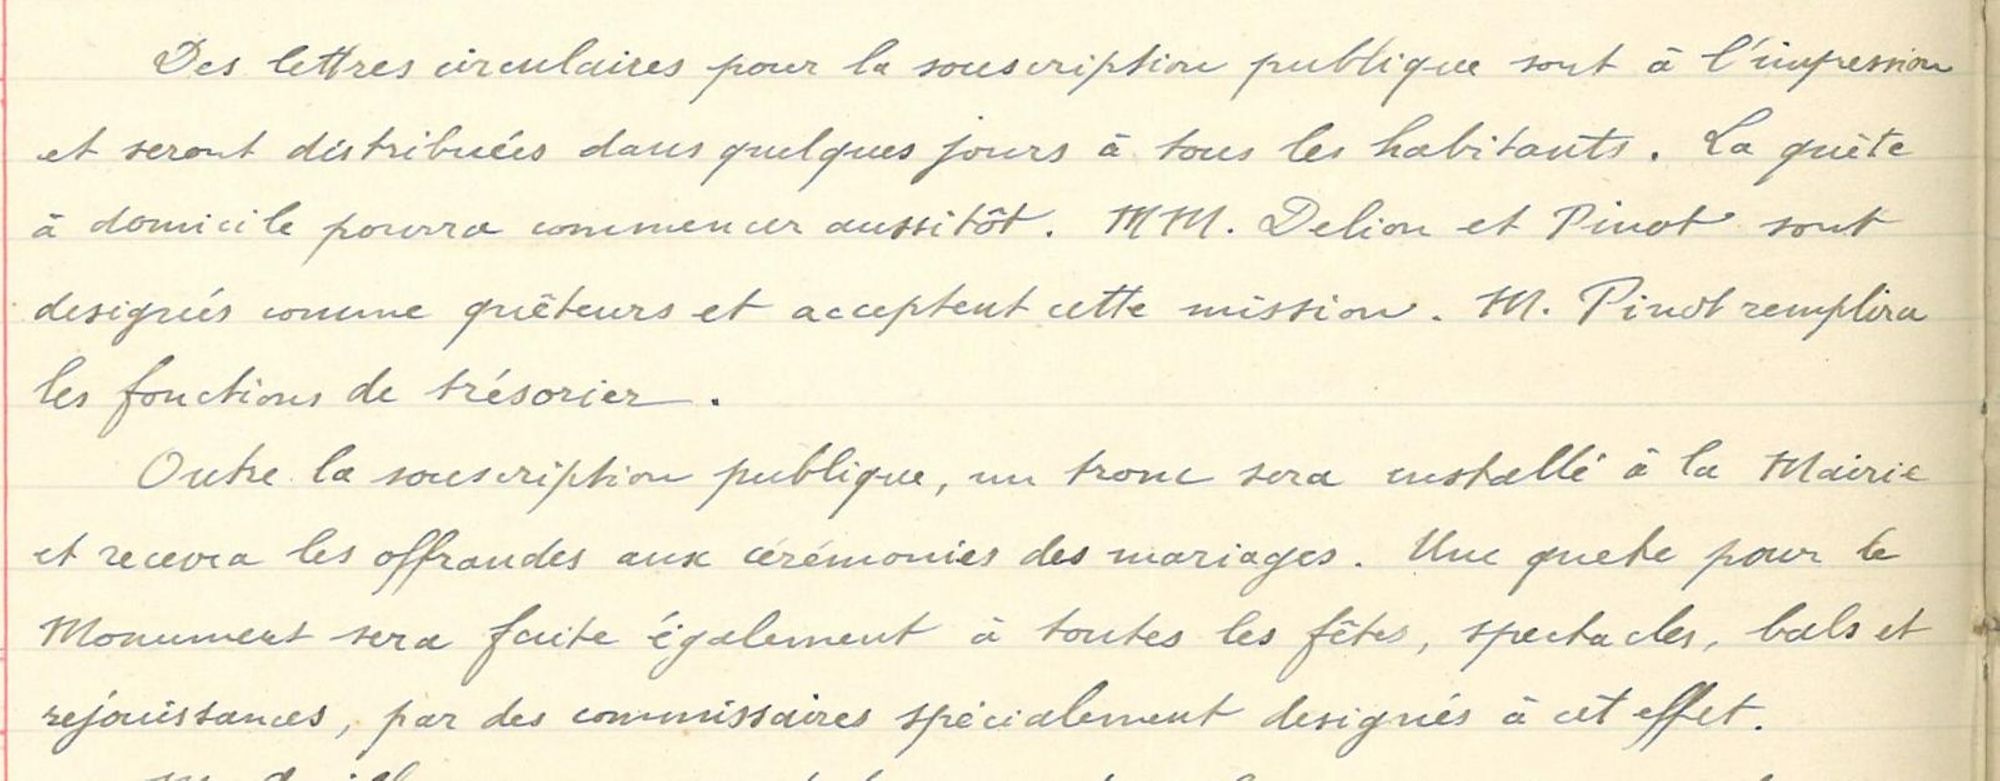 Des lettres circulaires pour la souscription publique sont à l'impression
et seront distribuées dans quelques jours à tous les habitants. La quête
à domicile pourra commencer aussitôt. MM. Delion et Pinot sont
designés comme quêteurs et acceptent cette mission. M. Pinot remplira
les fonctions de trésorier.
Outre la souscription publique, un tronc sera installé à la Mairie
et recevra les offrandes aux cérémonies des mariages. Une quete pour le
Monument sera faite également à toutes les fêtes, spectacles, bals et
rejouissances, par des commissaires spécialement designés à cet effet.